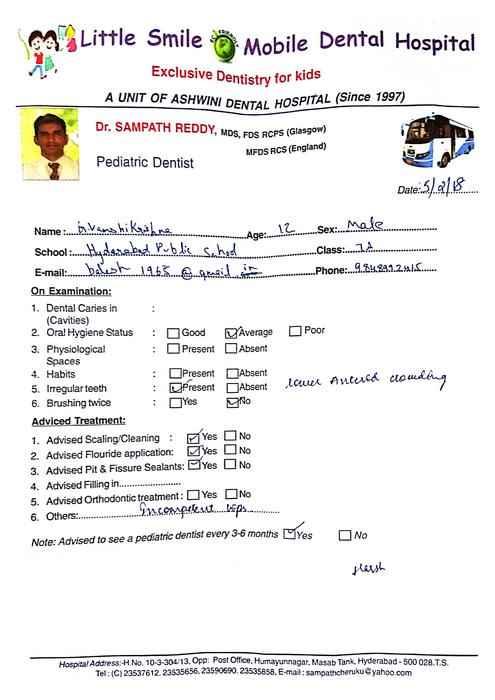 Little Smile Mobile Dental Hospital
Exclusive Dentistry for kids
A UNIT OF ASHWINI DENTAL HOSPITAL (Since 1997)
Dr. SAMPATH REDDY, MDS, FDS RCPS (Glasgow)
MFDS RCS (England)
Pediatric Dentist
Date: 5/2/18
Name: Age: 12 Sex: Male
School: Hyderabad Public School Class: 7A
E-mail: 1965 @ gmail Phone:
On Examination:
1. Dental Caries in :
(Cavities)
2. Oral Hygiene Status : Good Average Poor
3. Physiological : Present Absent
Spaces
4. Habits : Present Absent
5. Irregular teeth : Present Absent lower crowding
6. Brushing twice : Yes No
Adviced Treatment:
1. Advised Scaling/Cleaning : Yes No
2. Advised Flouride application: Yes No
3. Advised Pit & Fissure Sealants: Yes No
4. Advised Filling in
5. Advised Orthodontic treatment : Yes No
6. Others: Incompetent lips
Note: Advised to see a pediatric dentist every 3-6 months Yes No
Hospital Address:-H.No. 10-3-304/13, Opp: Post Office, Humayunnagar, Masab Tank, Hyderabad - 500 028.T.S.
Tel : (C) 23537612, 23535656, 23590690, 23535858, E-mail : sampathcheruku@yahoo.com